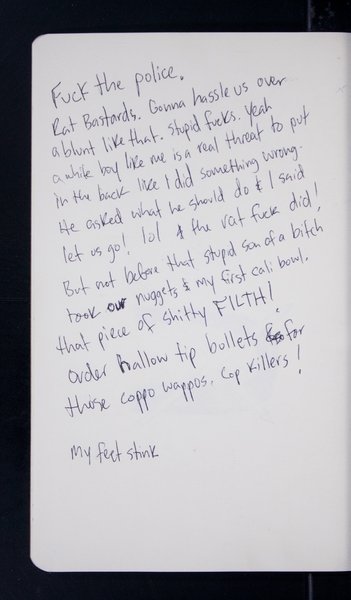 Fuck the police.
Rat Bastards. Gonna hassle us over
a blunt like that. Stupid fucks. Yeah
a white boy like me is a real threat to put
in the back like I did something wrong.
He asked what he should do & I said
let us go! lol & the rat fuck did!
But not before that stupid son of a bitch
took our nuggets & my first cali bowl,
that piece of shitty FILTH!
order hallow tip bullets for
those coppo wappos. Cop Killers!
My feet stink